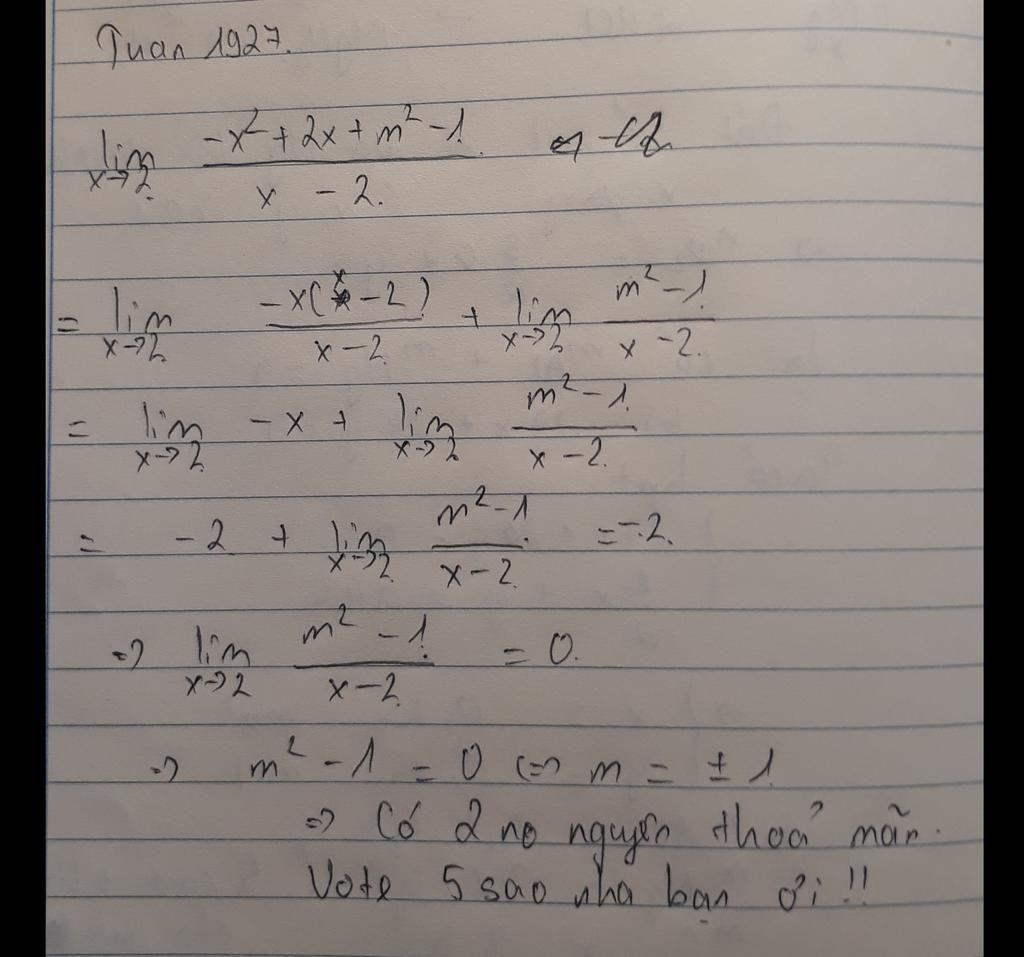 Tuan 1927.
lim x→2 (-x² + 2x + m² - 1)/(x - 2)
= lim x→2 (-x(x - 2))/(x - 2) + lim x→2 (m² - 1)/(x - 2)
= lim x→2 -x + lim x→2 (m² - 1)/(x - 2)
= -2 + lim x→2 (m² - 1)/(x - 2) = -2.
⇒ lim x→2 (m² - 1)/(x - 2) = 0.
⇒ m² - 1 = 0 ⇔ m = ± 1
⇒ Có 2 no nguyên thoả mãn.
Vote 5 sao nha bạn ơi !!